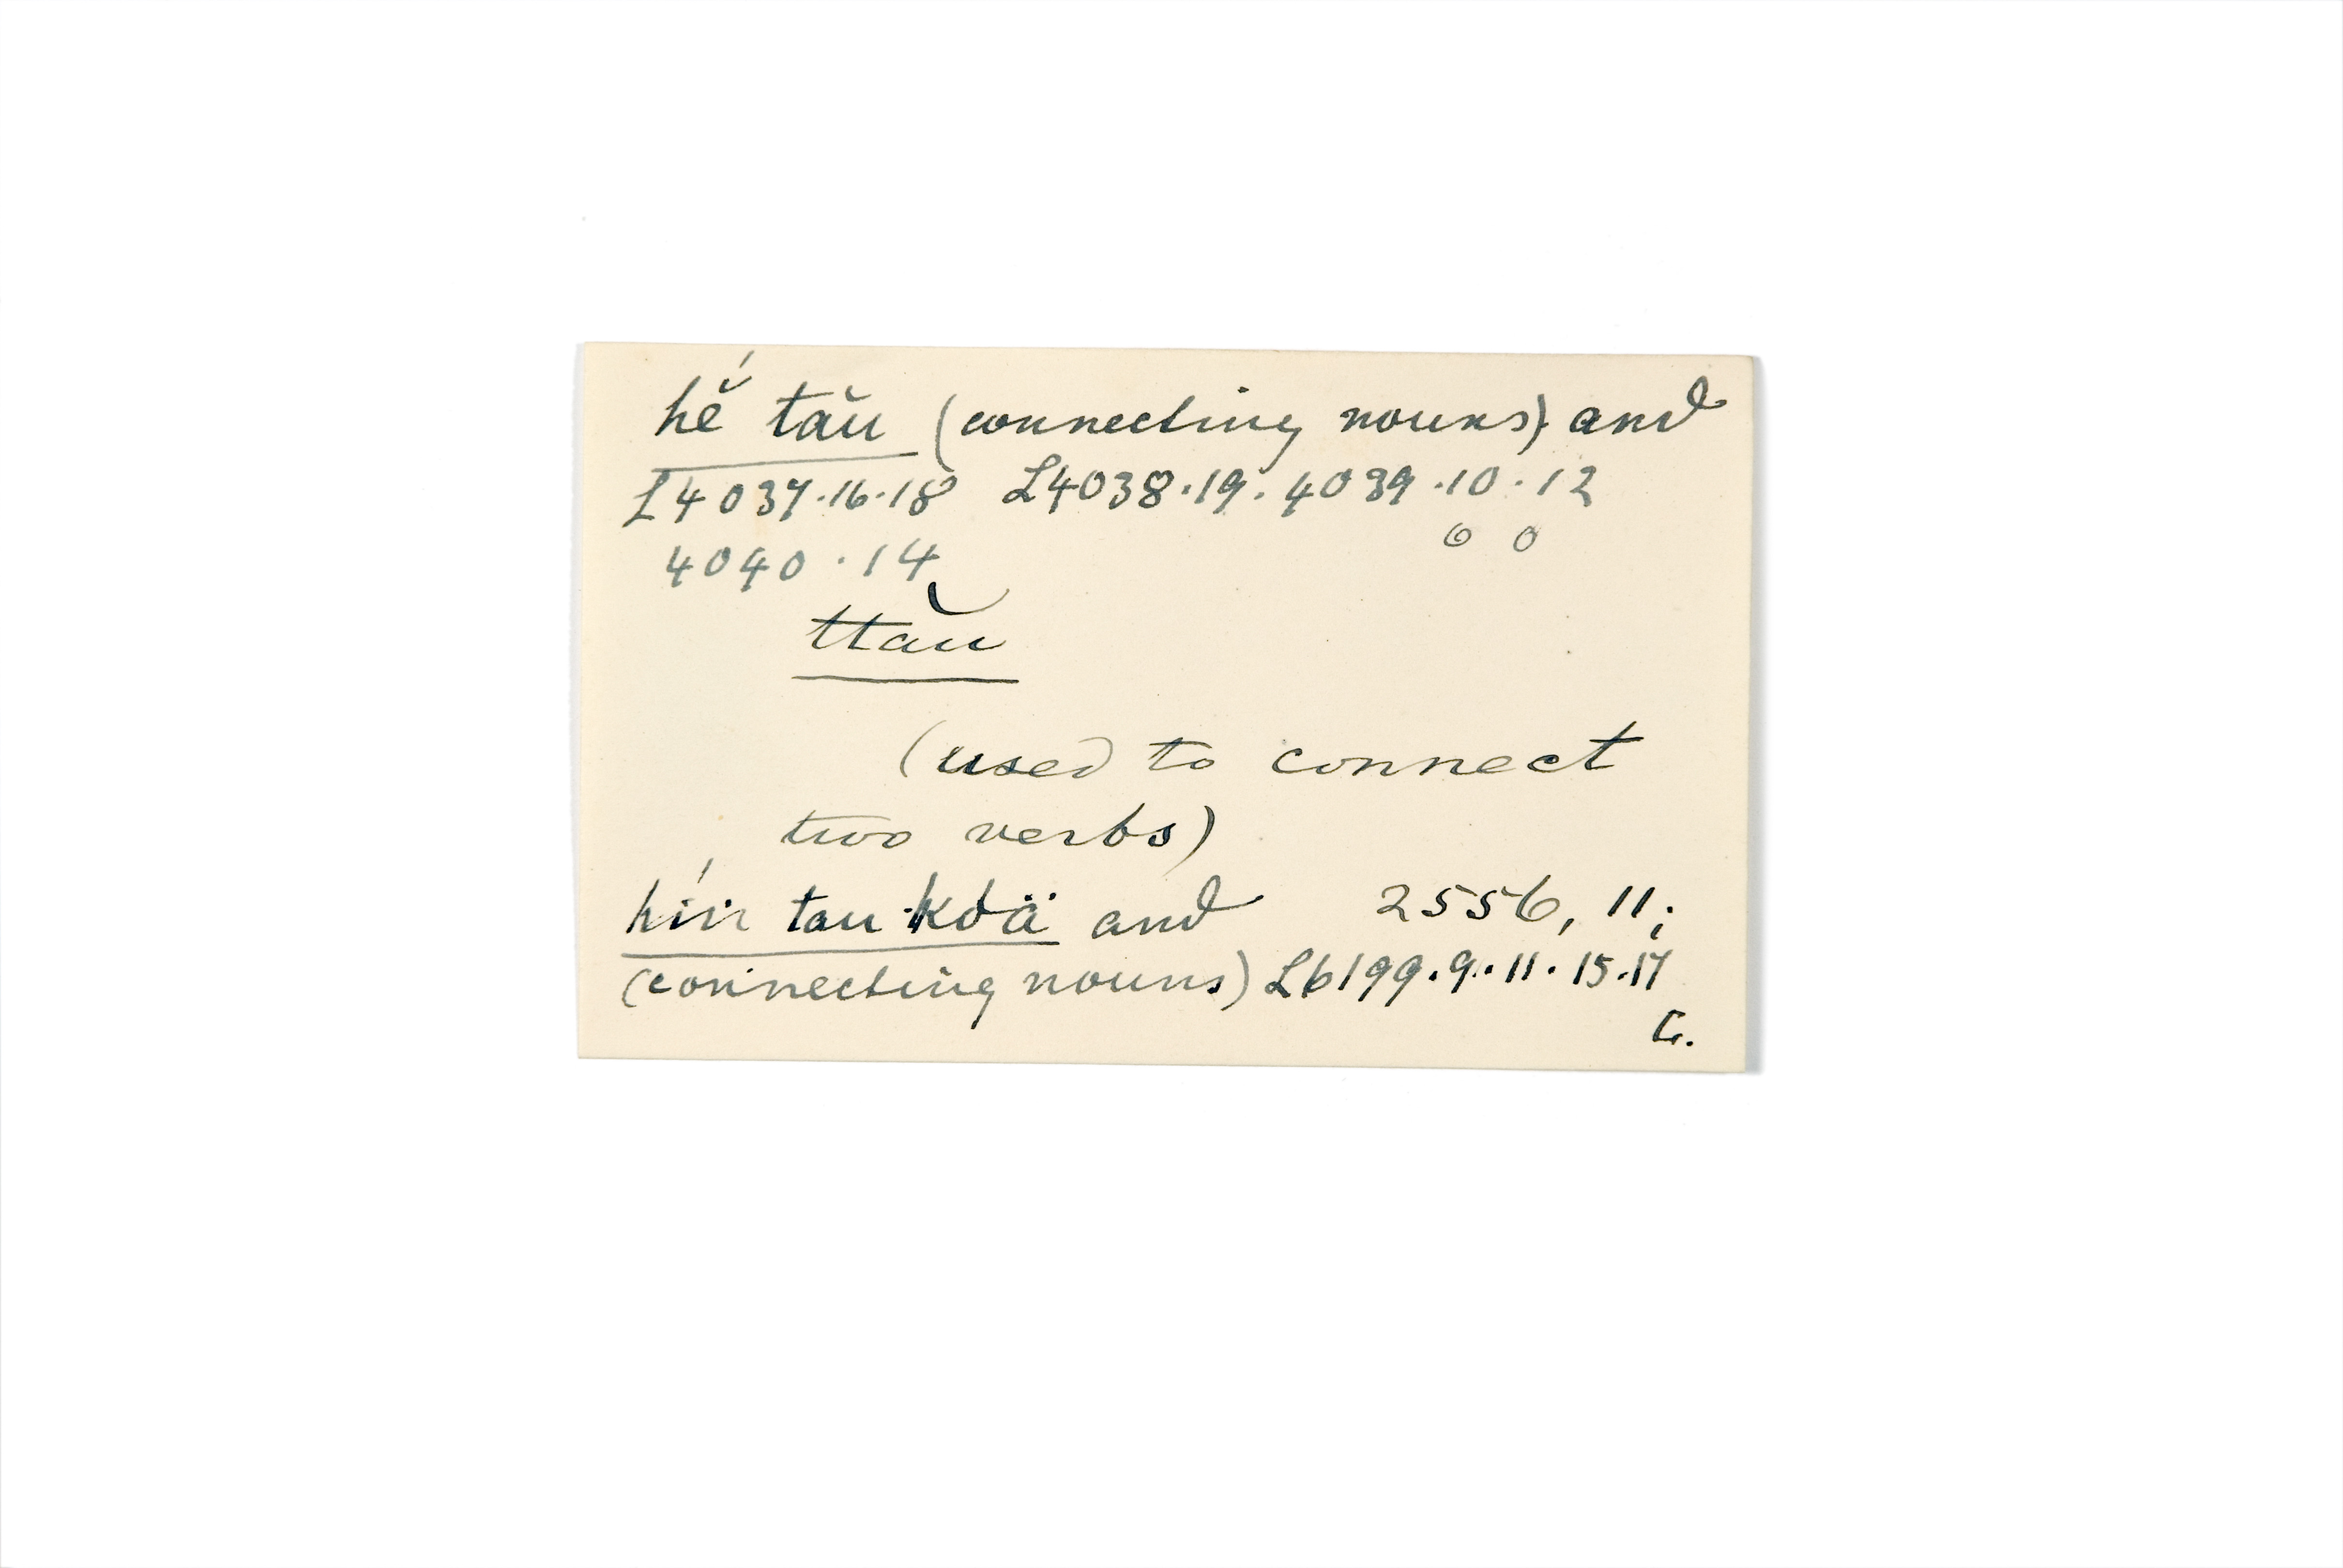 hé̆ tau̐ (connecting nouns) and
L4037.16.18 L4038.19.4039.10.12
4040.14
ttaŭ
(used to connect
two verbs)
tau kóä and 2556, 11;
(connecting nouns) L6199.9.11.15.17